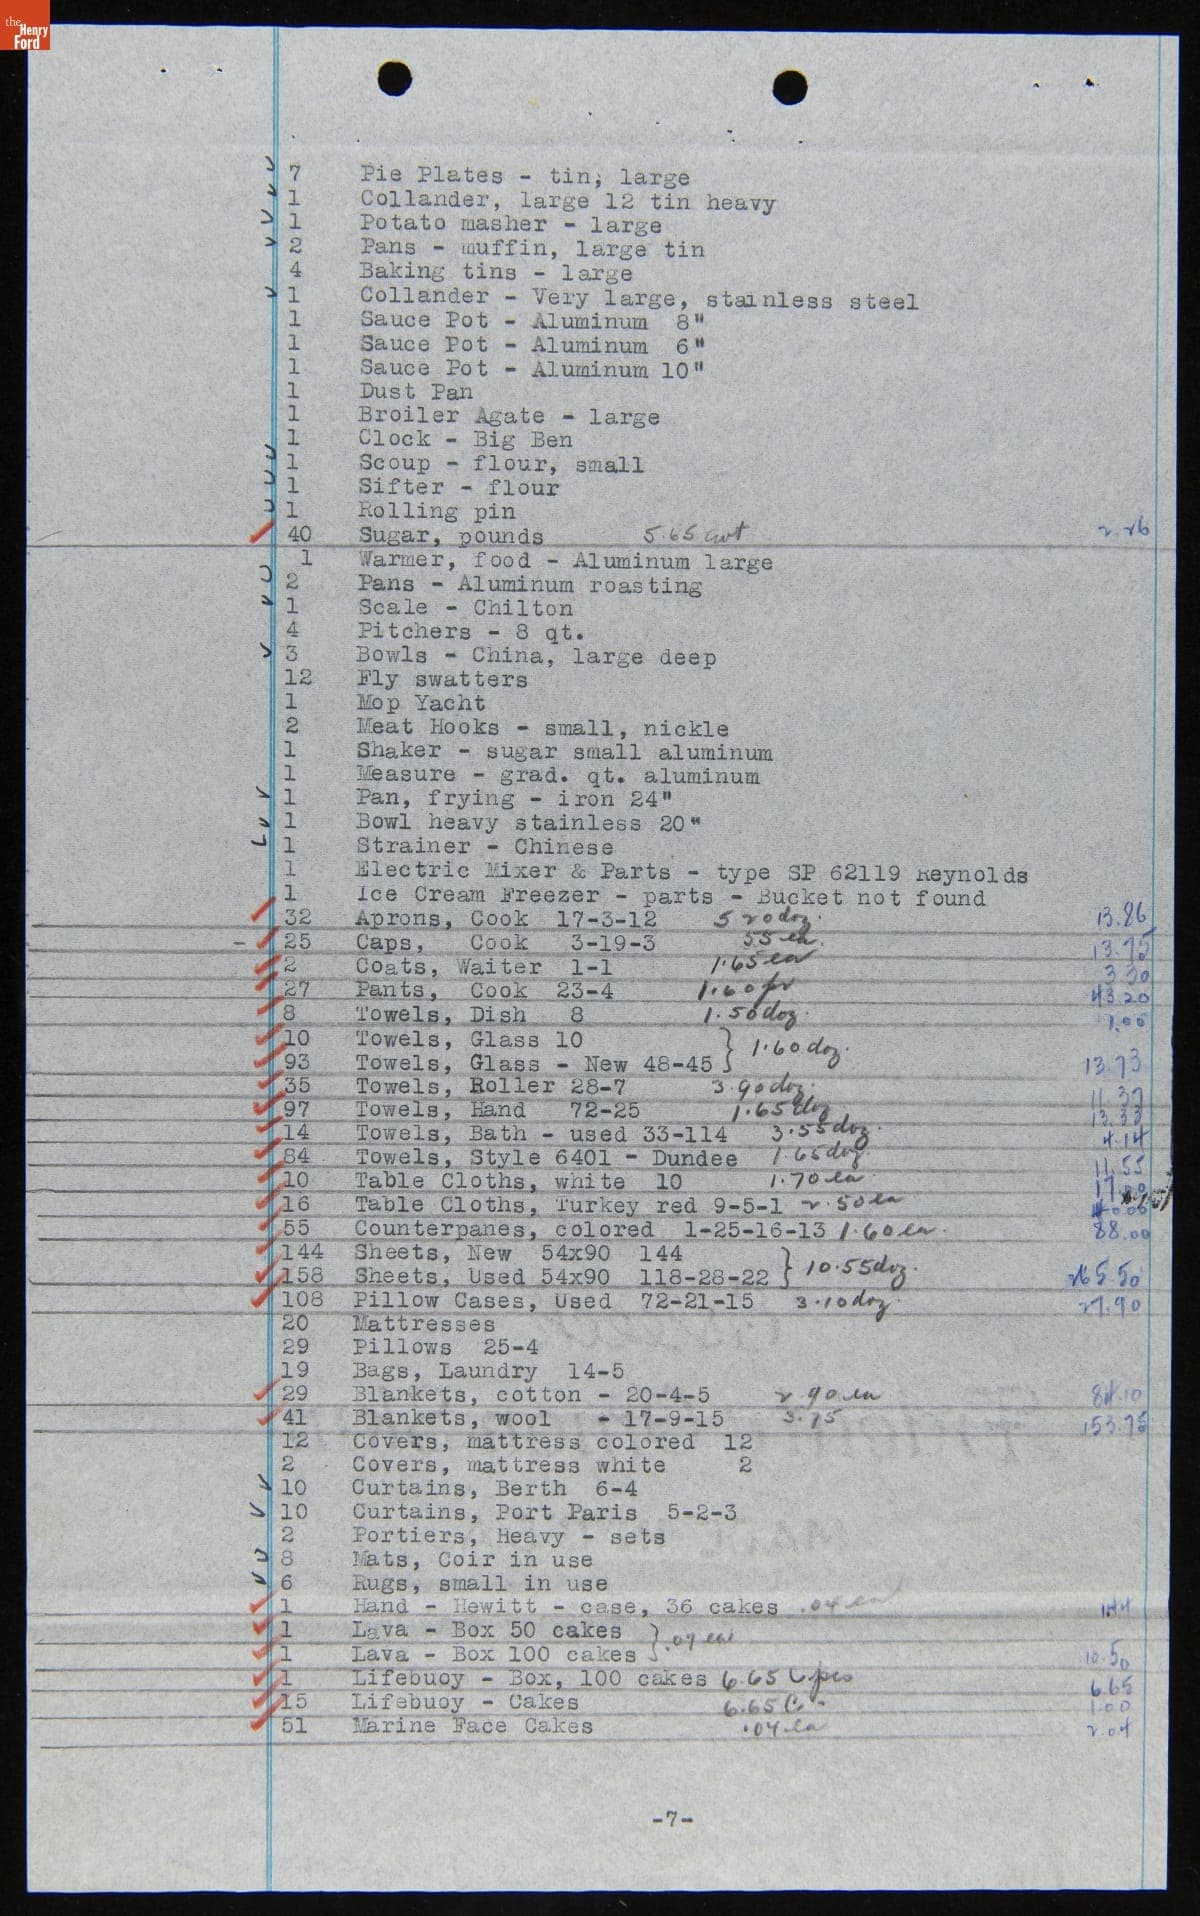 the Henry Ford
7 Pie Plates - tin, large
1 Collander, large 12 tin heavy
1 Potato masher - large
2 Pans - muffin, large tin
4 Baking tins - large
1 Collander - Very large, stainless steel
1 Sauce Pot - Aluminum 8"
1 Sauce Pot - Aluminum 6"
1 Sauce Pot - Aluminum 10"
1 Dust Pan
1 Broiler Agate - large
1 Clock - Big Ben
1 Scoup - flour, small
1 Sifter - flour
1 Rolling pin
40 Sugar, pounds 5.65 cwt 2.26
1 Warmer, food - Aluminum large
2 Pans - Aluminum roasting
1 Scale - Chilton
4 Pitchers - 8 qt.
3 Bowls - China, large deep
12 Fly swatters
1 Mop Yacht
2 Meat Hooks - small, nickle
1 Shaker - sugar small aluminum
1 Measure - grad. qt. aluminum
1 Pan, frying - iron 24"
1 Bowl heavy stainless 20"
1 Strainer - Chinese
1 Electric Mixer & Parts - type SP 62119 Reynolds
1 Ice Cream Freezer - parts - Bucket not found
32 Aprons, Cook 17-3-12 5 20 doz. 13.86
25 Caps, Cook 3-19-3 55 ea. 13.75
2 Coats, Waiter 1-1 1.65 ea 3 30
27 Pants, Cook 23-4 1.60 pr 43.20
8 Towels, Dish 8 1.50 doz. 1.00
10 Towels, Glass 10 } 1.60 doz.
93 Towels, Glass - New 48-45 13.73
35 Towels, Roller 28-7 3.90 doz. 11.37
97 Towels, Hand 72-25 1.65 doz 13.33
14 Towels, Bath - used 33-114 3.55 doz. 4.14
84 Towels, Style 6401 - Dundee 1.65 doz. 11.55
10 Table Cloths, white 10 1.70 ea 17.00
16 Table Cloths, Turkey red 9-5-1 2.50 ea 40.00
55 Counterpanes, colored 1-25-16-13 1.60 ea. 88.00
144 Sheets, New 54x90 144 } 10.55 doz.
158 Sheets, Used 54x90 118-28-22 265.50
108 Pillow Cases, Used 72-21-15 3.10 doz. 27.90
20 Mattresses
29 Pillows 25-4
19 Bags, Laundry 14-5
29 Blankets, cotton - 20-4-5 2.90 ea 84.10
41 Blankets, wool - 17-9-15 3.75 153.75
12 Covers, mattress colored 12
2 Covers, mattress white 2
10 Curtains, Berth 6-4
10 Curtains, Port Paris 5-2-3
2 Portiers, Heavy - sets
8 Mats, Coir in use
6 Rugs, small in use
1 Hand - Hewitt - case, 36 cakes .04 ea 1.44
1 Lava - Box 50 cakes } .07 ea
1 Lava - Box 100 cakes 10.50
1 Lifebuoy - Box, 100 cakes 6.65 C pcs 6.65
15 Lifebuoy - Cakes 6.65 C 1.00
51 Marine Face Cakes .04 ea 2.04
-7-